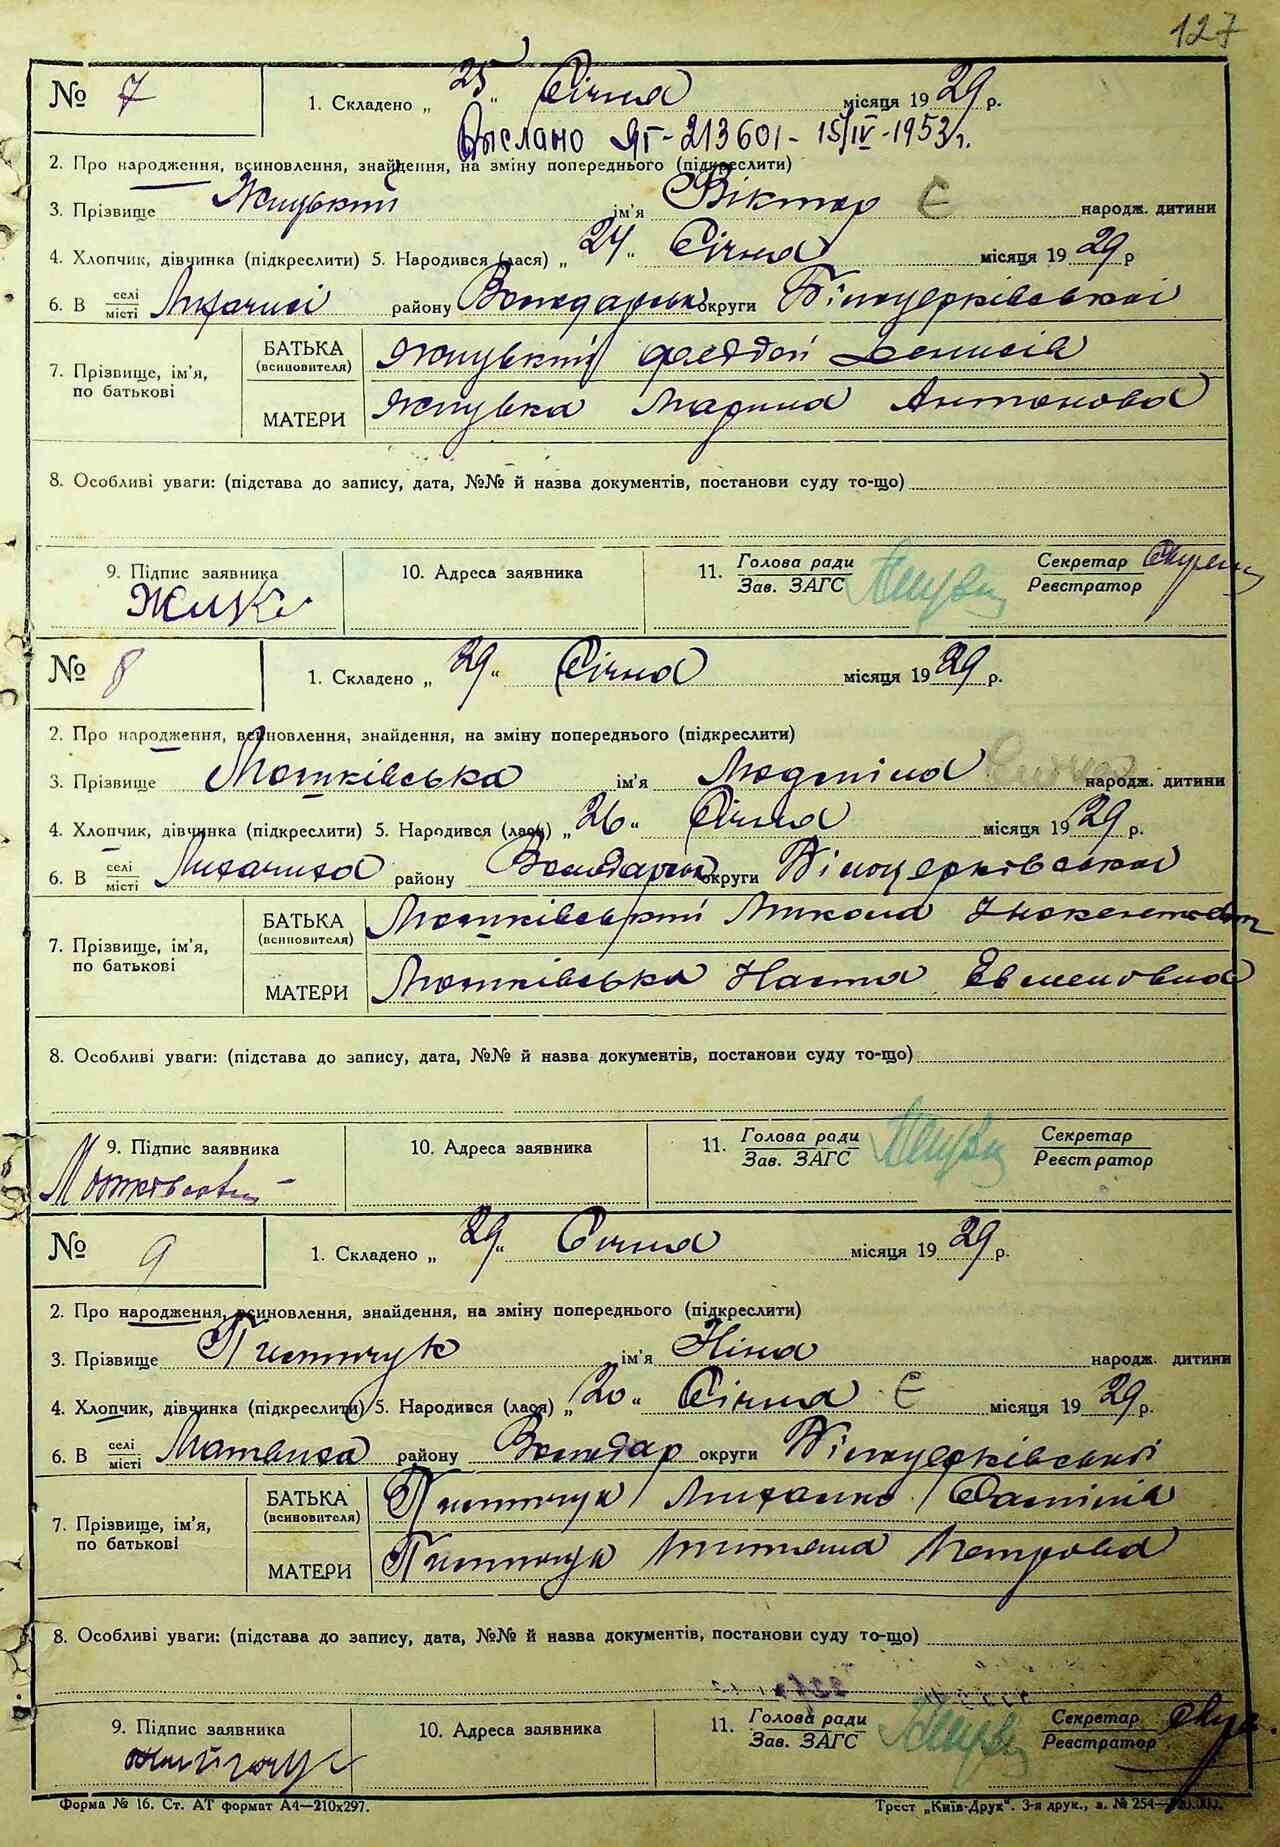 127
№ 7 1. Складено „25“ Січня місяця 1929 р.
Выслано ЯГ-213601 - 15/IV-1953 г.
2. Про народження, всиновлення, знайдення, на зміну попереднього (підкреслити)
3. Прізвище ім'я Віктор Є народж. дитини
4. Хлопчик, дівчинка (підкреслити) 5. Народився (лася) „24“ Січня місяця 1929 р
6. В селі місті району Володарськ округи Білоцерківської
7. Прізвище, ім'я, по батькові
БАТЬКА (всиновителя) Денисів
МАТЕРИ Марина Антонова
8. Особливі уваги: (підстава до запису, дата, №№ й назва документів, постанови суду то-що)
9. Підпис заявника 10. Адреса заявника 11. Голова ради Зав. ЗАГС Секретар Реєстратор
№ 8 1. Складено „29“ Січня місяця 1929 р.
2. Про народження, всиновлення, знайдення, на зміну попереднього (підкреслити)
3. Прізвище Мотківська ім'я Людміла народж. дитини
4. Хлопчик, дівчинка (підкреслити) 5. Народився (лася) „26“ Січня місяця 1929 р.
6. В селі місті району Володарськ округи Білоцерківської
7. Прізвище, ім'я, по батькові
БАТЬКА (всиновителя) Мотківський Микола
МАТЕРИ Мотківська Настя Евменовна
8. Особливі уваги: (підстава до запису, дата, №№ й назва документів, постанови суду то-що)
9. Підпис заявника 10. Адреса заявника 11. Голова ради Зав. ЗАГС Секретар Реєстратор
№ 9 1. Складено „29“ Січня місяця 1929 р.
2. Про народження, всиновлення, знайдення, на зміну попереднього (підкреслити)
3. Прізвище ім'я Ніна народж. дитини
4. Хлопчик, дівчинка (підкреслити) 5. Народився (лася) „20“ Січня Є місяця 1929 р.
6. В селі місті району Володар округи Білоцерківської
7. Прізвище, ім'я, по батькові
БАТЬКА (всиновителя) Михайло
МАТЕРИ Титяна Петрова
8. Особливі уваги: (підстава до запису, дата, №№ й назва документів, постанови суду то-що)
9. Підпис заявника 10. Адреса заявника 11. Голова ради Зав. ЗАГС Секретар Реєстратор
Форма № 16. Ст. АТ формат А4—210х297. Трест „Київ-Друк“. 3-я друк., з. № 254